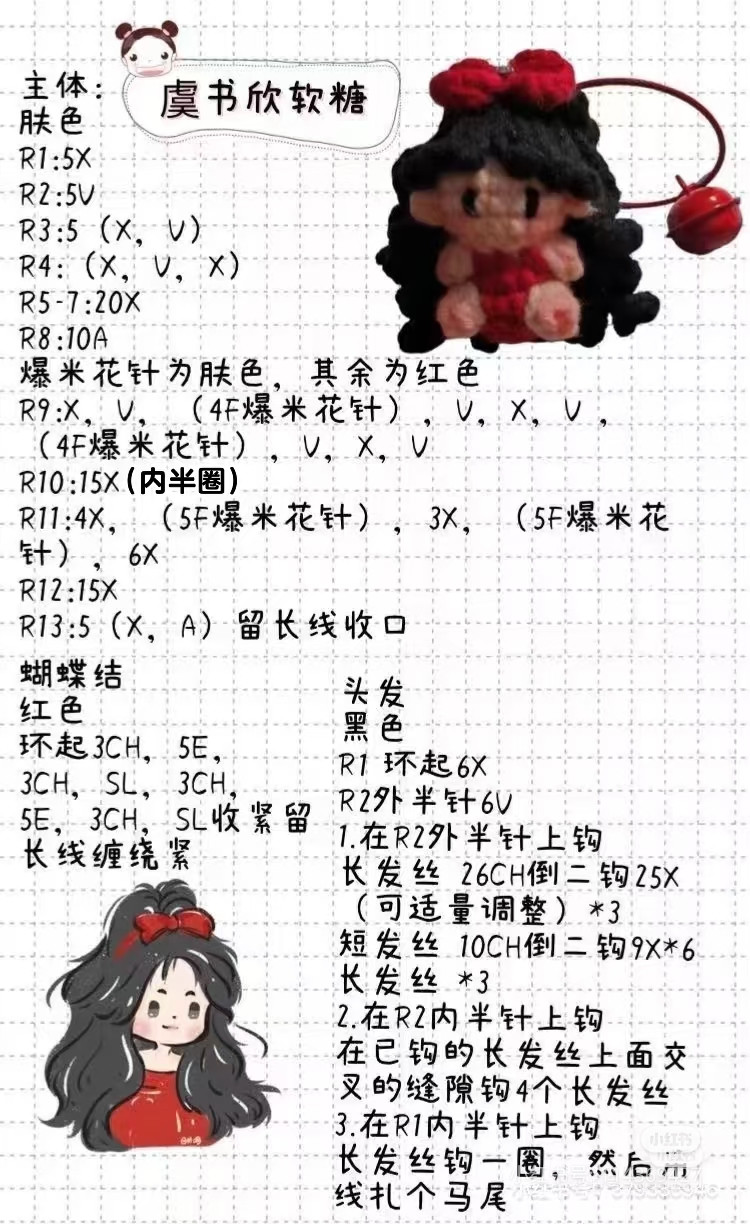 虞书欣软糖
主体：
肤色
R1:5X
R2:5V
R3:5（X，V）
R4:（X，V，X）
R5-7:20X
R8:10A
爆米花针为肤色，其余为红色
R9:X，V，（4F爆米花针），V，X，V，
（4F爆米花针），V，X，V
R10:15X(内半圈)
R11:4X，（5F爆米花针），3X，（5F爆米花
针），6X
R12:15X
R13:5（X，A）留长线收口
蝴蝶结
红色
环起3CH，5E，
3CH，SL，3CH，
5E，3CH，SL收紧留
长线缠绕紧
头发
黑色
R1 环起6X
R2外半针6V
1.在R2外半针上钩
长发丝 26CH倒二钩25X
（可适量调整）*3
短发丝 10CH倒二钩9X*6
长发丝 *3
2.在R2内半针上钩
在已钩的长发丝上面交
叉的缝隙钩4个长发丝
3.在R1内半针上钩
长发丝钩一圈，然后用
线扎个马尾
小红书